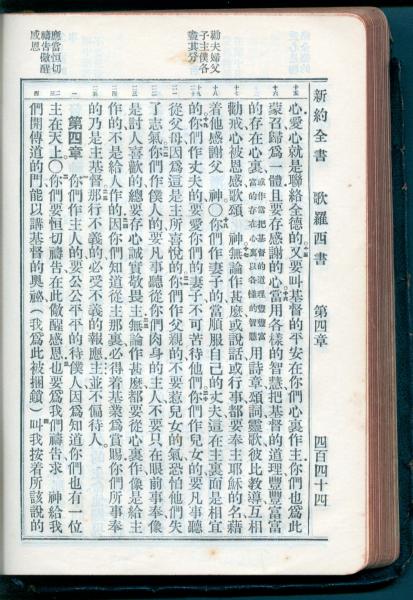 新約全書　歌羅西書　第四章　四百四十四
勸夫婦父
子主僕各
盡其分
應當恒切
禱告儆醒
感恩
心愛心就是聯絡全德的、又要叫基督的平安在你們心裏作主、你們也爲此
蒙召歸爲一體、且要存感謝的心、當用各樣的智慧、把基督的道理、豐豐富富
的存在心裏、或作當把基督的道理豐豐富富
的存在心裏以各樣的智慧用詩章、頌詞、靈歌、彼此教導、互相
勸戒心被恩感歌頌　神、無論作甚麽、或說話、或行事、都要奉主耶穌的名、藉
着他感謝父　神〇你們作妻子的、當順服自己的丈夫、這在主裏面是相宜
的、你們作丈夫的、要愛你們的妻子、不可苦待他們、你們作兒女的、要凡事聽
從父母、因爲這是主所喜悅的、你們作父親的、不要惹兒女的氣、恐怕他們失
了志氣、你們作僕人的、要凡事聽從你們肉身的主人、不要只在眼前事奉、像
是討人喜歡的、總要存心誠實敬畏主、無論作甚麽、都要從心裏作、像是給主
作的、不是給人作的、因你們知道從主那裏、必得着基業爲賞賜、你們所事奉
的乃是主基督、那行不義的、必受不義的報應、主並不偏待人、
第四章　你們作主人的、要公公平平的待僕人、因爲知道你們也有一位
主在天上〇你們要恒切禱告、在此儆醒感恩、也要爲我們禱告、求　神給我
們開傳道的門、能以講基督的奧祕、(我爲此被捆鎖)叫我按着所該說的